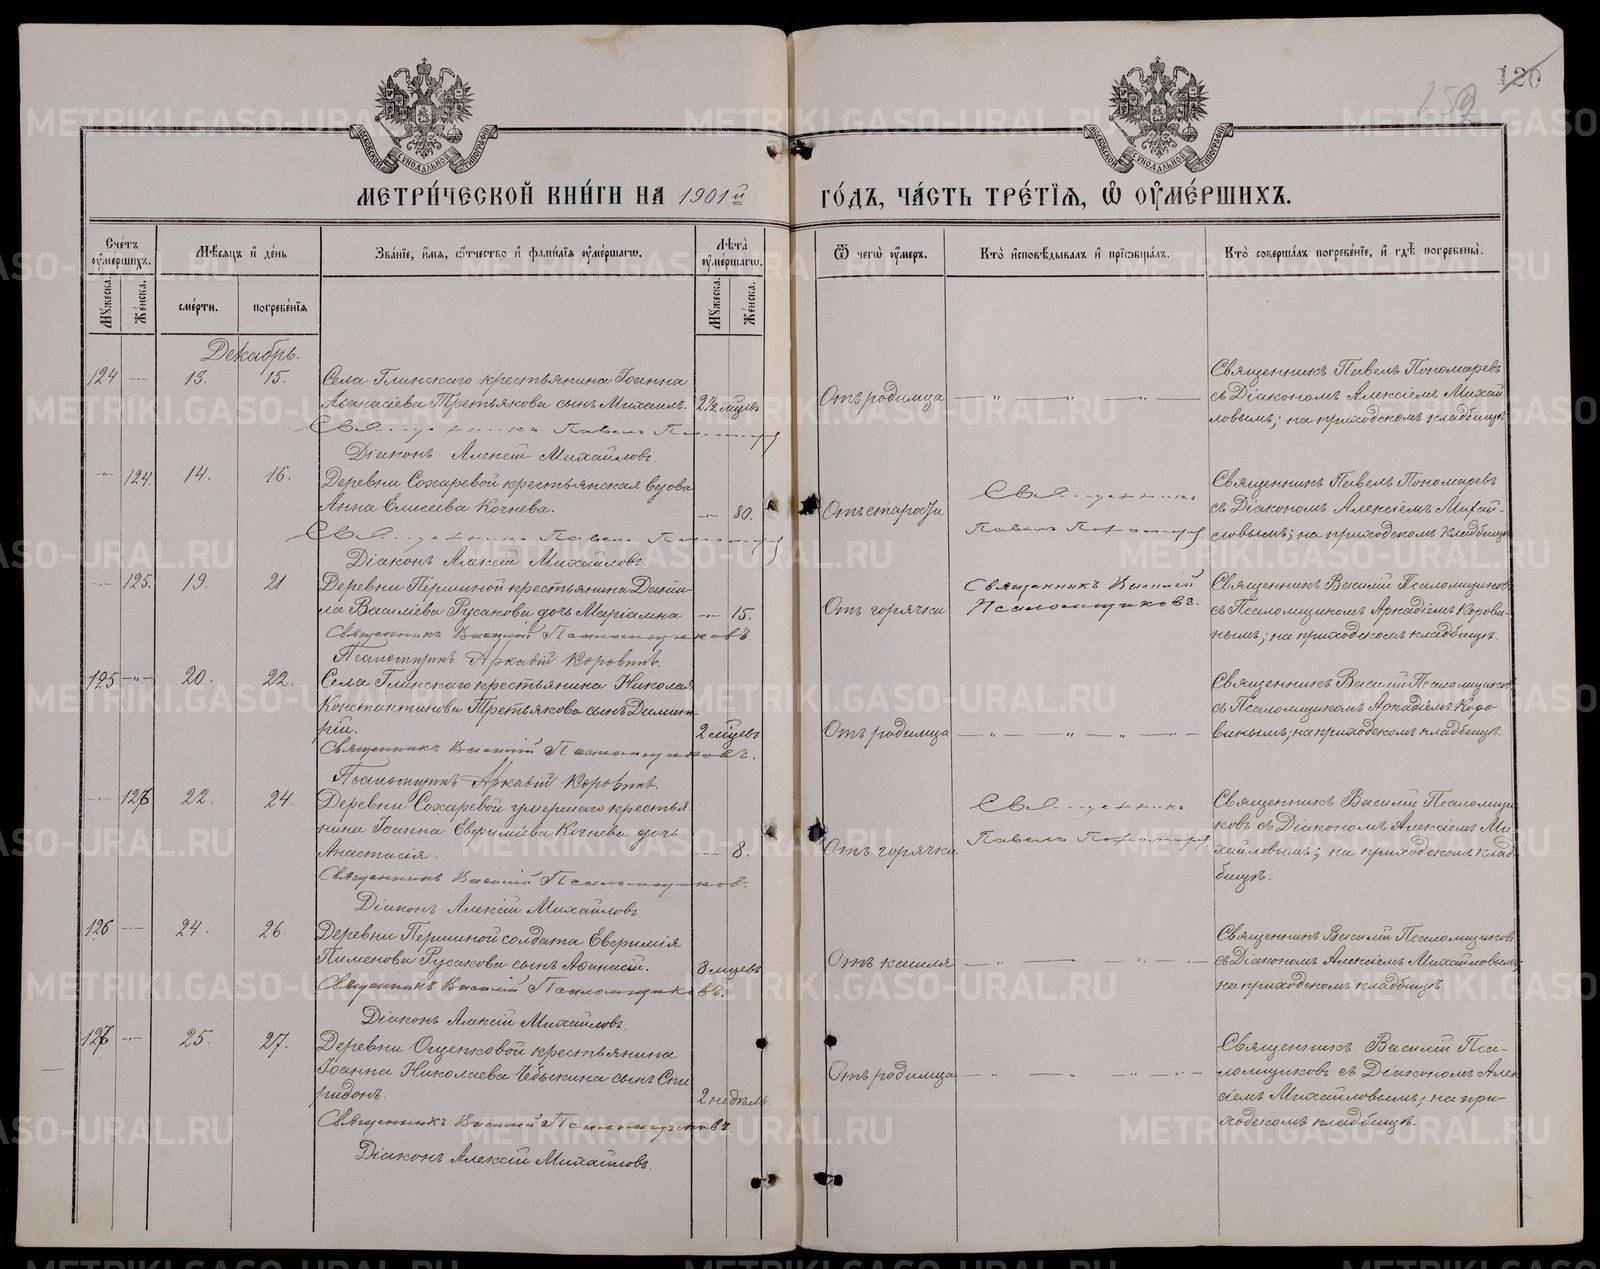 120
259
МЕТРИ́ЧЕСКОЙ КНИ́ГИ НА 1901й ГО́ДЪ, ЧА́СТЬ ТРЕ́ТІѦ, Ѿ ОУМЕ́РШИХЪ.
Сче́тъ оуме́ршихъ.
Мꙋжеска.
Же́нска.
Мѣсѧцъ и де́нь
сме́рти.
погребе́нїѧ
Зва́нїе, и́мѧ, ѻ́тчество и фами́лїѧ оуме́ршагѡ.
Лѣта̀ оуме́ршагѡ.
Мꙋжеска.
Же́нска.
Ѿ чегѡ̀ оу́меръ.
Кто̀ и҆сповѣ́дывалъ и прїѡбща́лъ.
Кто̀ соверша́лъ погребе́нїе, и гдѣ̀ погребены̀.
Декабрь.
124 — 13. 15. Села Глинскаго крестьянина Іоанна
Аѳанасіева Третьякова сынъ Михаилъ. 2½ мѣсяцевъ
Священникъ Павелъ Пономаревъ
Діаконъ Алексій Михайловъ.
Отъ родимца — „ — „ — „ —
Священникъ Павелъ Пономаревъ
съ Діакономъ Алексіемъ Михай
ловымъ; на приходскомъ кладбищѣ
— „ — 124. 14. 16. Деревни Сохаревой крестьянская вдова
Анна Елисеева Кочнева. — „ — 80.
Священникъ Павелъ Пономаревъ
Діаконъ Алексій Михайловъ.
Отъ старости
Священникъ
Павелъ Пономаревъ
Священникъ Павелъ Пономаревъ
съ Діакономъ Алексіемъ Михай-
ловымъ; на приходскомъ кладбищѣ
— „ — 125. 19. 21 Деревни Першиной крестьянина Даніи-
ла Васильева Русакова дочь Маріамна — „ — 15.
Священникъ Василій Псаломщиковъ
Псаломщикъ Аркадій Коровинъ.
Отъ горячки
Священникъ Василій
Псаломщиковъ.
Священникъ Василій Псаломщиковъ
съ Псаломщикомъ Аркадіемъ Корови-
нымъ; на приходскомъ кладбищѣ.
125 — „ — 20. 22. Села Глинскаго крестьянина Николая
Константинова Третьякова сынъ Димит-
рій. 2 мѣсяцевъ
Священникъ Василій Псаломщиковъ.
Псаломщикъ Аркадій Коровинъ.
Отъ родимца — „ — „ — „ — „ —
Священникъ Василій Псаломщиковъ
съ Псаломщикомъ Аркадіемъ Коро-
винымъ; на приходскомъ кладбищѣ.
— „ — 126 22. 24. Деревни Сохаревой умершаго крестья
нина Іоанна Евфиміева Кочнева дочь
Анастасія. — 8.
Священникъ Василій Псаломщиковъ.
Діаконъ Алексій Михайловъ.
Отъ горячки
Священникъ
Павелъ Пономаревъ
Священникъ Василій Псаломщи
ковъ съ Діакономъ Алексіемъ Ми
хайловымъ; на приходскомъ клад-
бищѣ.
126 — „ — 24. 26. Деревни Першиной солдата Евфимія
Пименова Русакова сынъ Аѳанасій. 3 мѣсяцевъ
Священникъ Василій Псаломщиковъ.
Діаконъ Алексій Михайловъ.
Отъ кашля — „ — „ — „ —
Священникъ Василій Псаломщиковъ
съ Діакономъ Алексіемъ Михайловымъ;
на приходскомъ кладбищѣ.
127 — „ — 25. 27. Деревни Ощепковой крестьянина
Іоанна Николаева Чебыкина сынъ Спи
ридонъ. 2 недѣль.
Священникъ Василій Псаломщиковъ.
Діаконъ Алексій Михайловъ.
Отъ родимца — „ — „ — „ — „ —
Священникъ Василій Пса-
ломщиковъ съ Діакономъ Алек
сіемъ Михайловымъ; на при-
ходскомъ кладбищѣ.